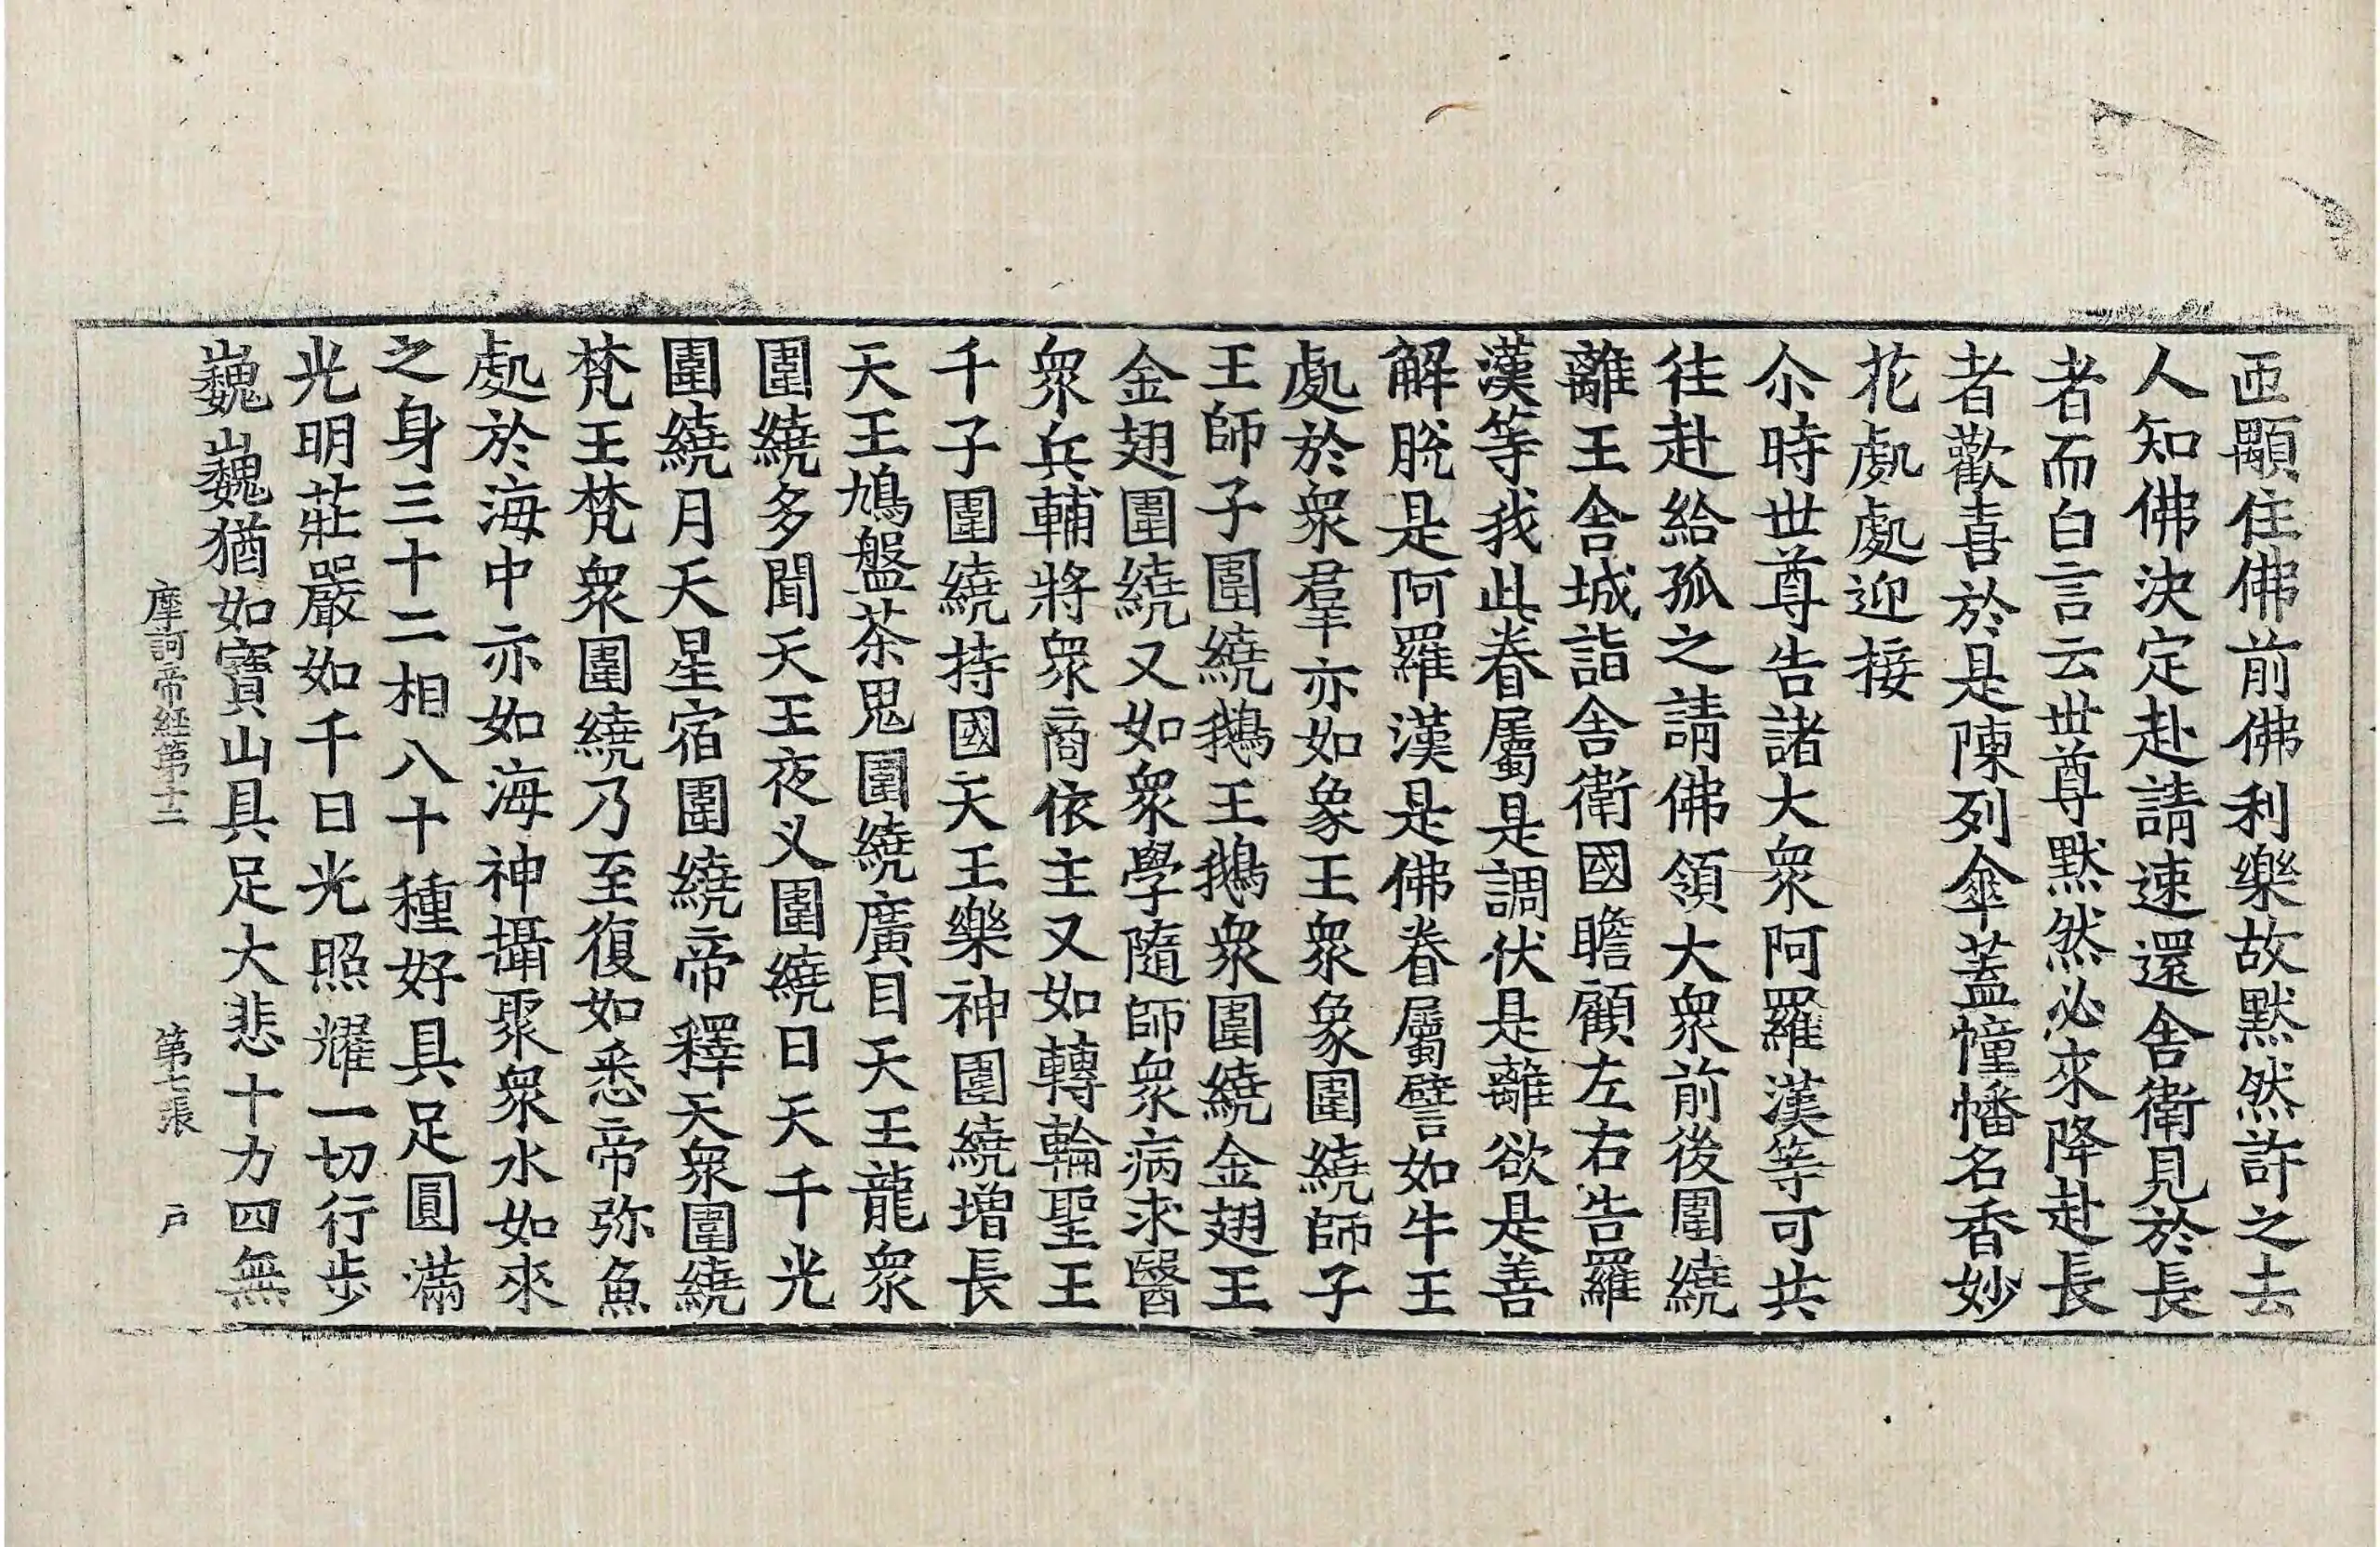 迊顒住佛前佛利樂故默然許之去
人知佛決定赴請速還舍衛見於長
者而白言云世尊默然必來降赴長
者歡喜於是陳列傘蓋幢幡名香妙
花處處迎接
尒時世尊告諸大衆阿羅漢等可共
往赴給孤之請佛領大衆前後圍繞
離王舍城詣舍衛國瞻顧左右告羅
漢等我此眷屬是調伏是離欲是善
解脫是阿羅漢是佛眷屬譬如牛王
處於衆羣亦如象王衆象圍繞師子
王師子圍繞鵝王鵝衆圍繞金翅王
金翅圍繞又如衆學隨師衆病求醫
衆兵輔將衆商依主又如轉輪聖王
千子圍繞持國天王樂神圍繞增長
天王鳩盤茶鬼圍繞廣目天王龍衆
圍繞多聞天王夜叉圍繞日天千光
圍繞月天星宿圍繞帝釋天衆圍繞
梵王梵衆圍繞乃至復如悉帝弥魚
處於海中亦如海神攝聚衆水如來
之身三十二相八十種好具足圓滿
光明莊嚴如千日光照耀一切行步
巍巍猶如寶山具足大悲十力四無
摩訶帝経第十二 第七張 户